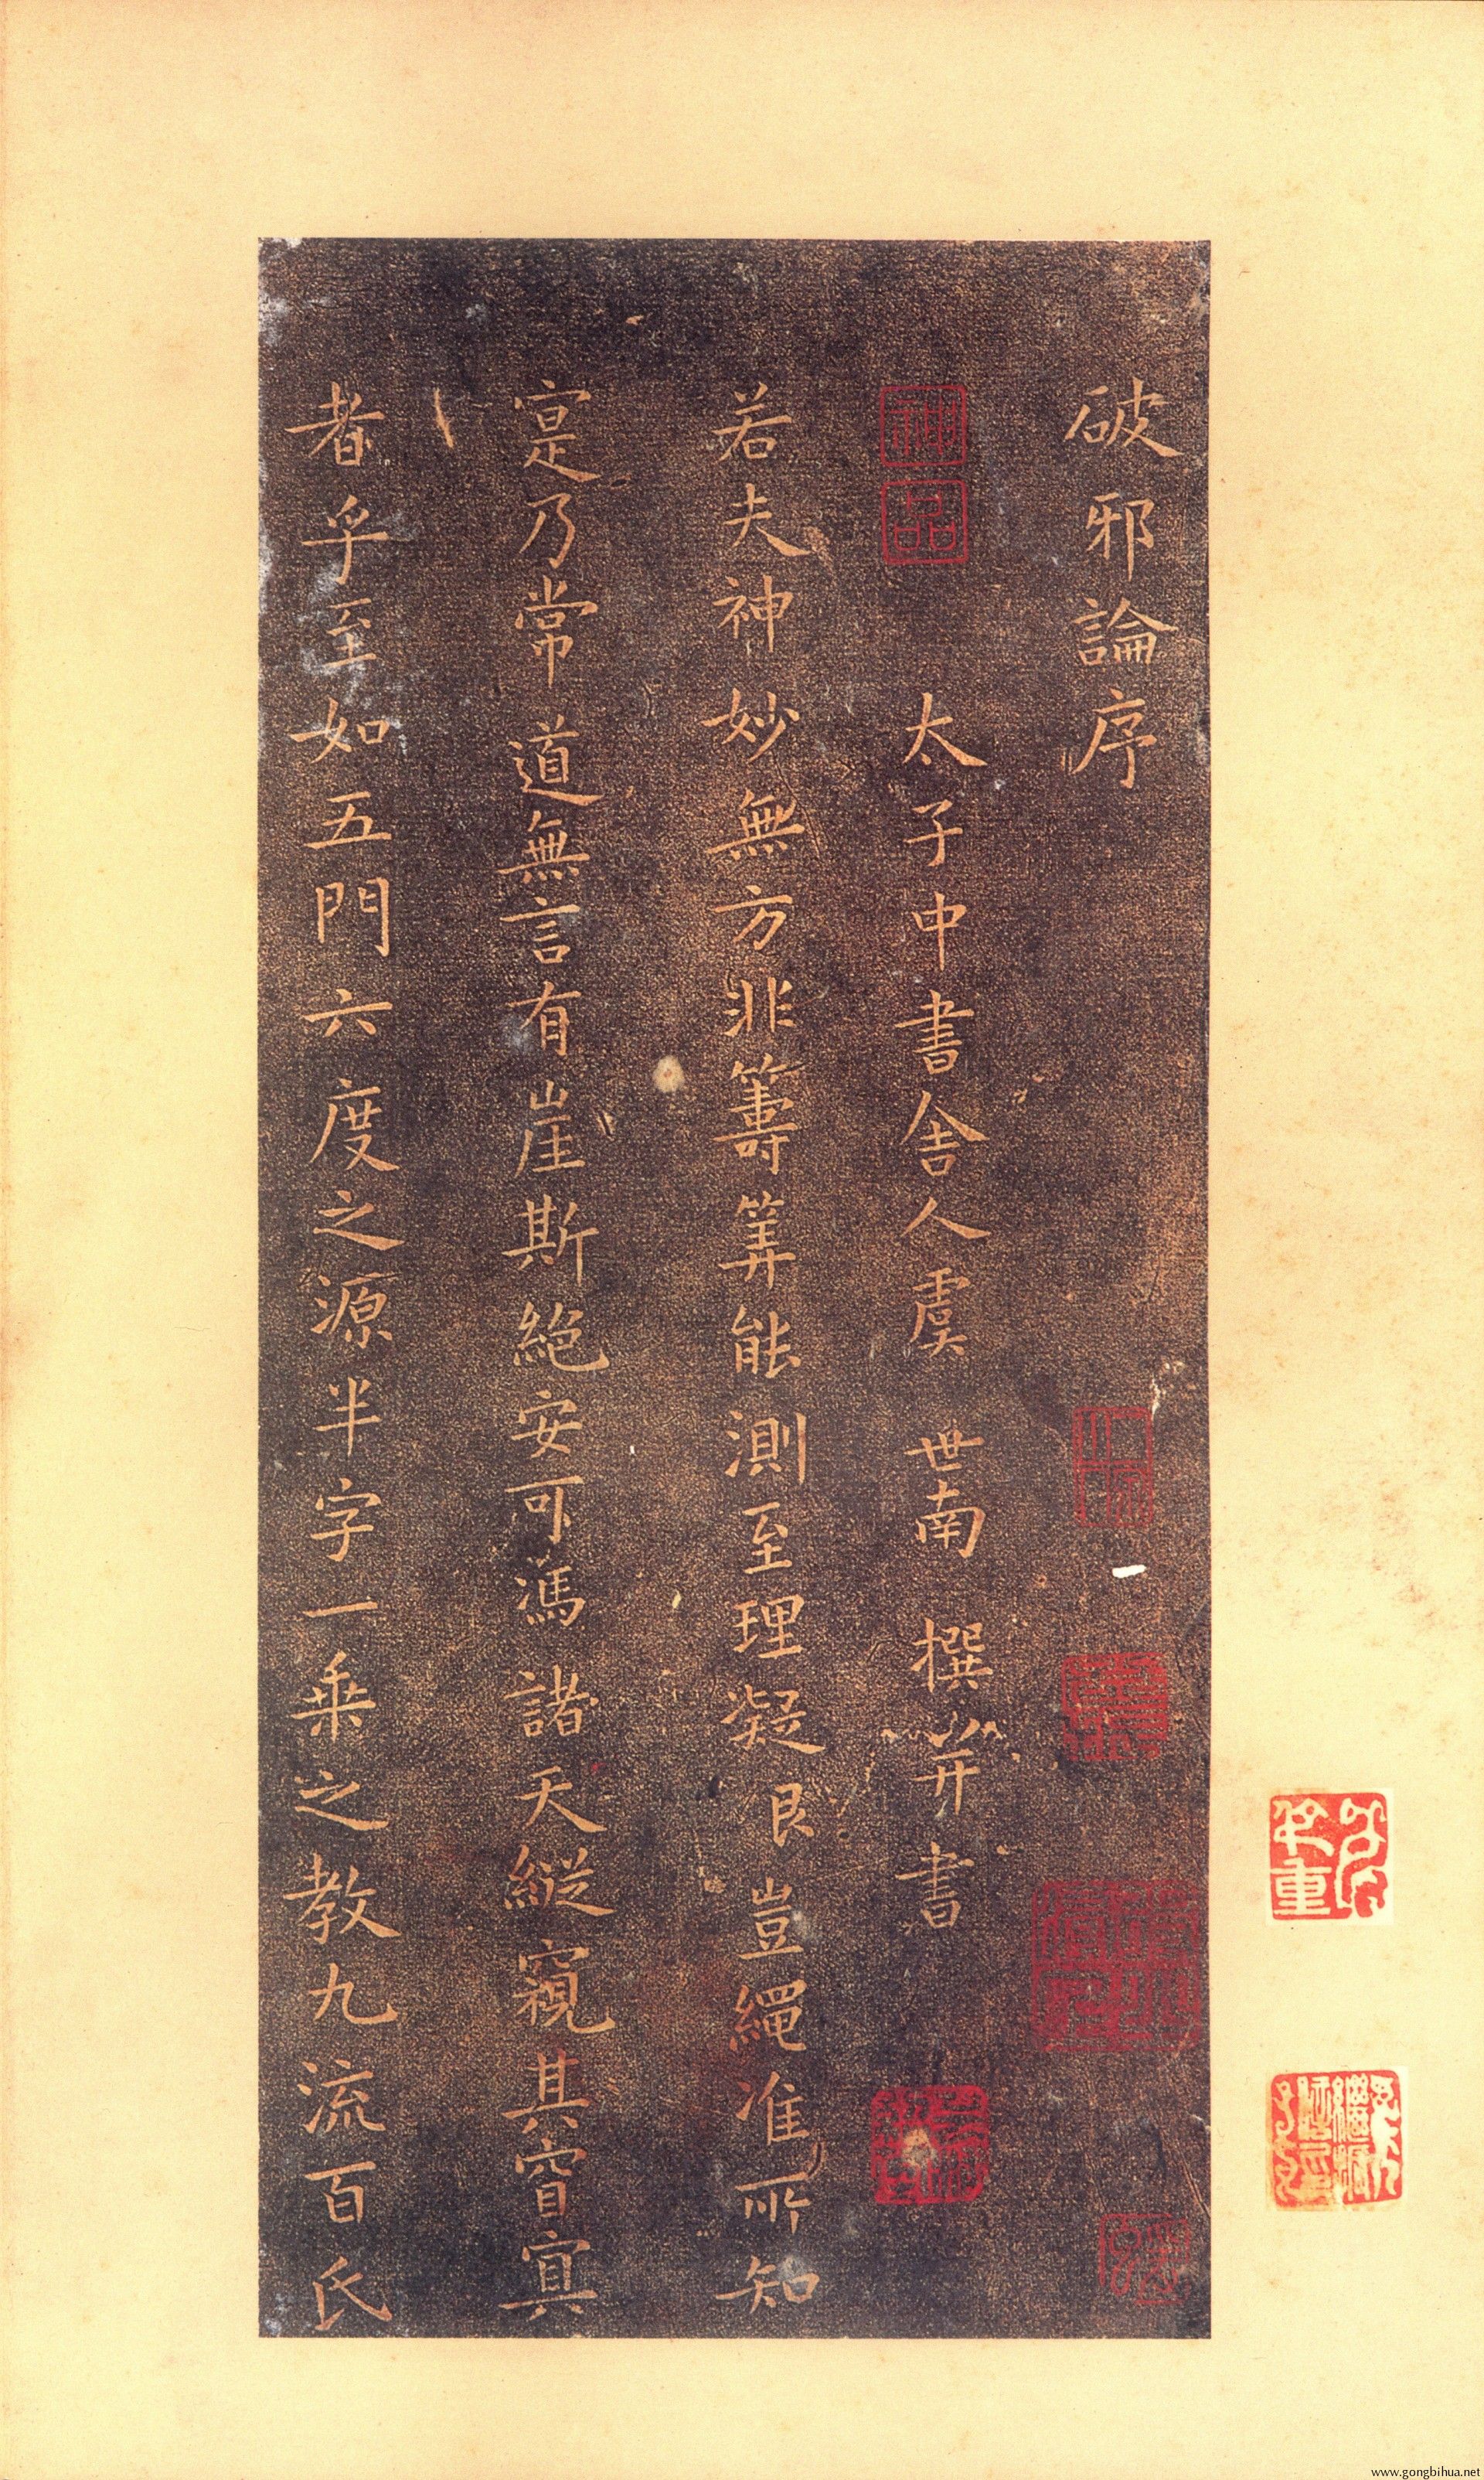 破邪論序
神品
太子中書舍人虞世南撰并書
若夫神妙無方非籌筭能測至理凝邈豈繩准所知
寔乃常道無言有崖斯絕安可馮諸天縱窺其窅寘
者乎至如五門六度之源半字一乘之教九流百氏
www.gongbihua.net